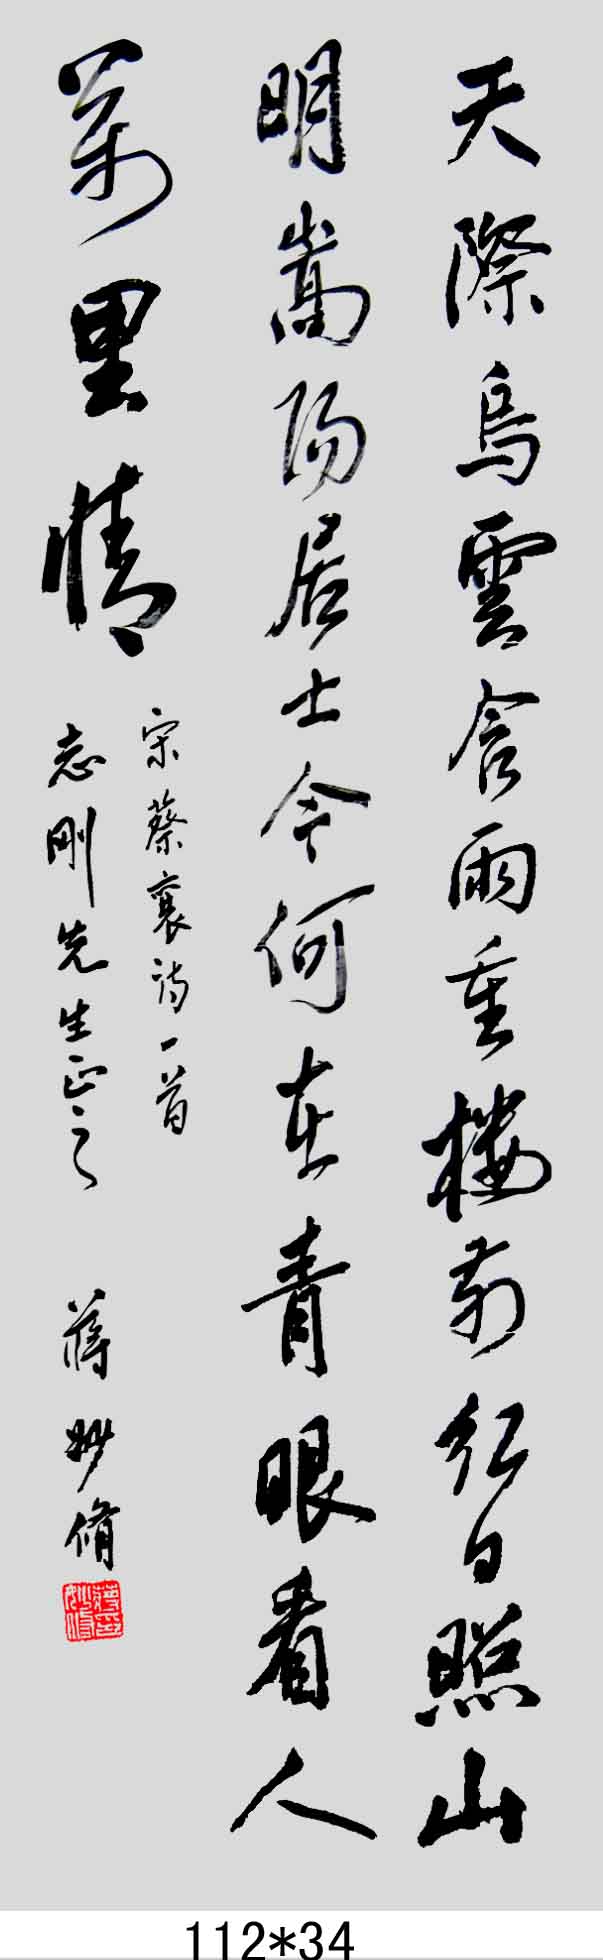 天際烏雲含雨重樓前紅日照山
明嵩陽居士今何在青眼看人
萬里情
宋蔡襄詩一首
志剛先生正之 蔣妙脩
112*34